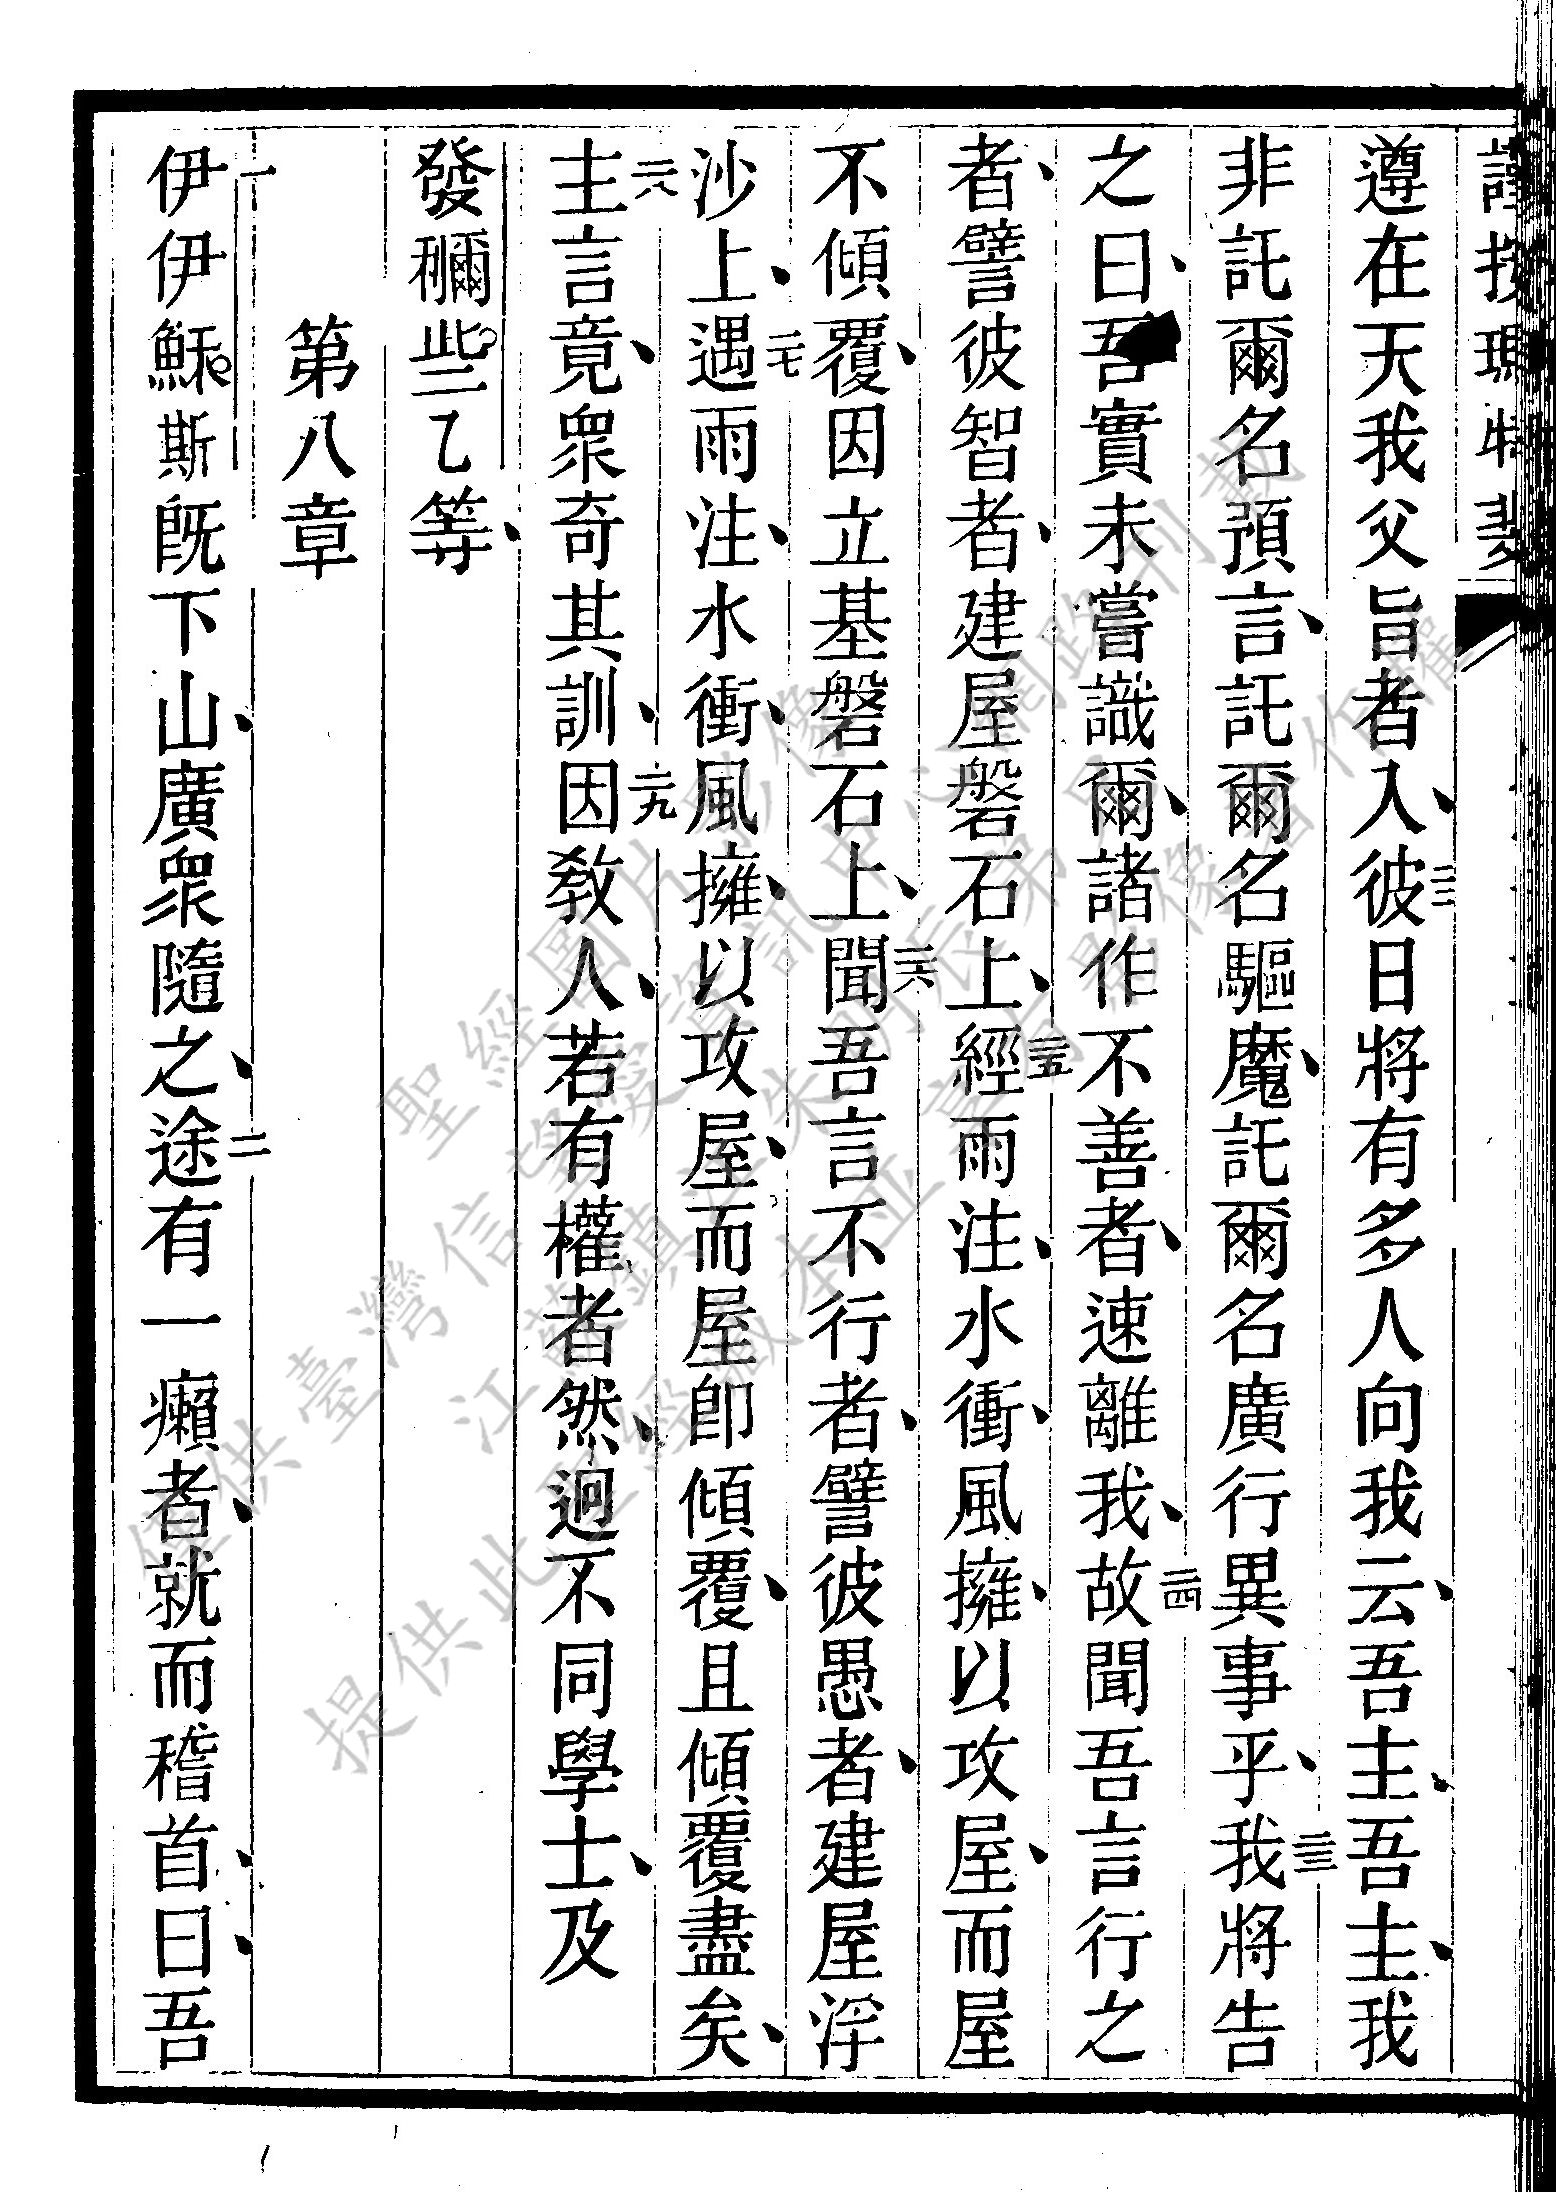 謹按瑪特斐
遵在天我父旨者入、彼二二日將有多人向我云、吾主、吾主、我
非託爾名預言、託爾名驅魔、託爾名廣行異事乎、我二三將告
之曰、吾實未嘗識爾、諸作不善者、速離我、故二四聞吾言行之
者、譬彼智者、建屋磐石上、經二五雨注、水衝、風擁、以攻屋、而屋
不傾覆、因立基磐石上、聞二六吾言不行者、譬彼愚者、建屋浮
沙上、遇二七雨注、水衝、風擁、以攻屋、而屋卽傾覆、且傾覆盡矣、
主二八言竟、眾奇其訓、因二九教人、若有權者然、迥不同學士、及
發穪些乙等、
第八章
伊一伊穌斯旣下山、廣眾隨之、途二有一癩者、就而稽首、曰、吾